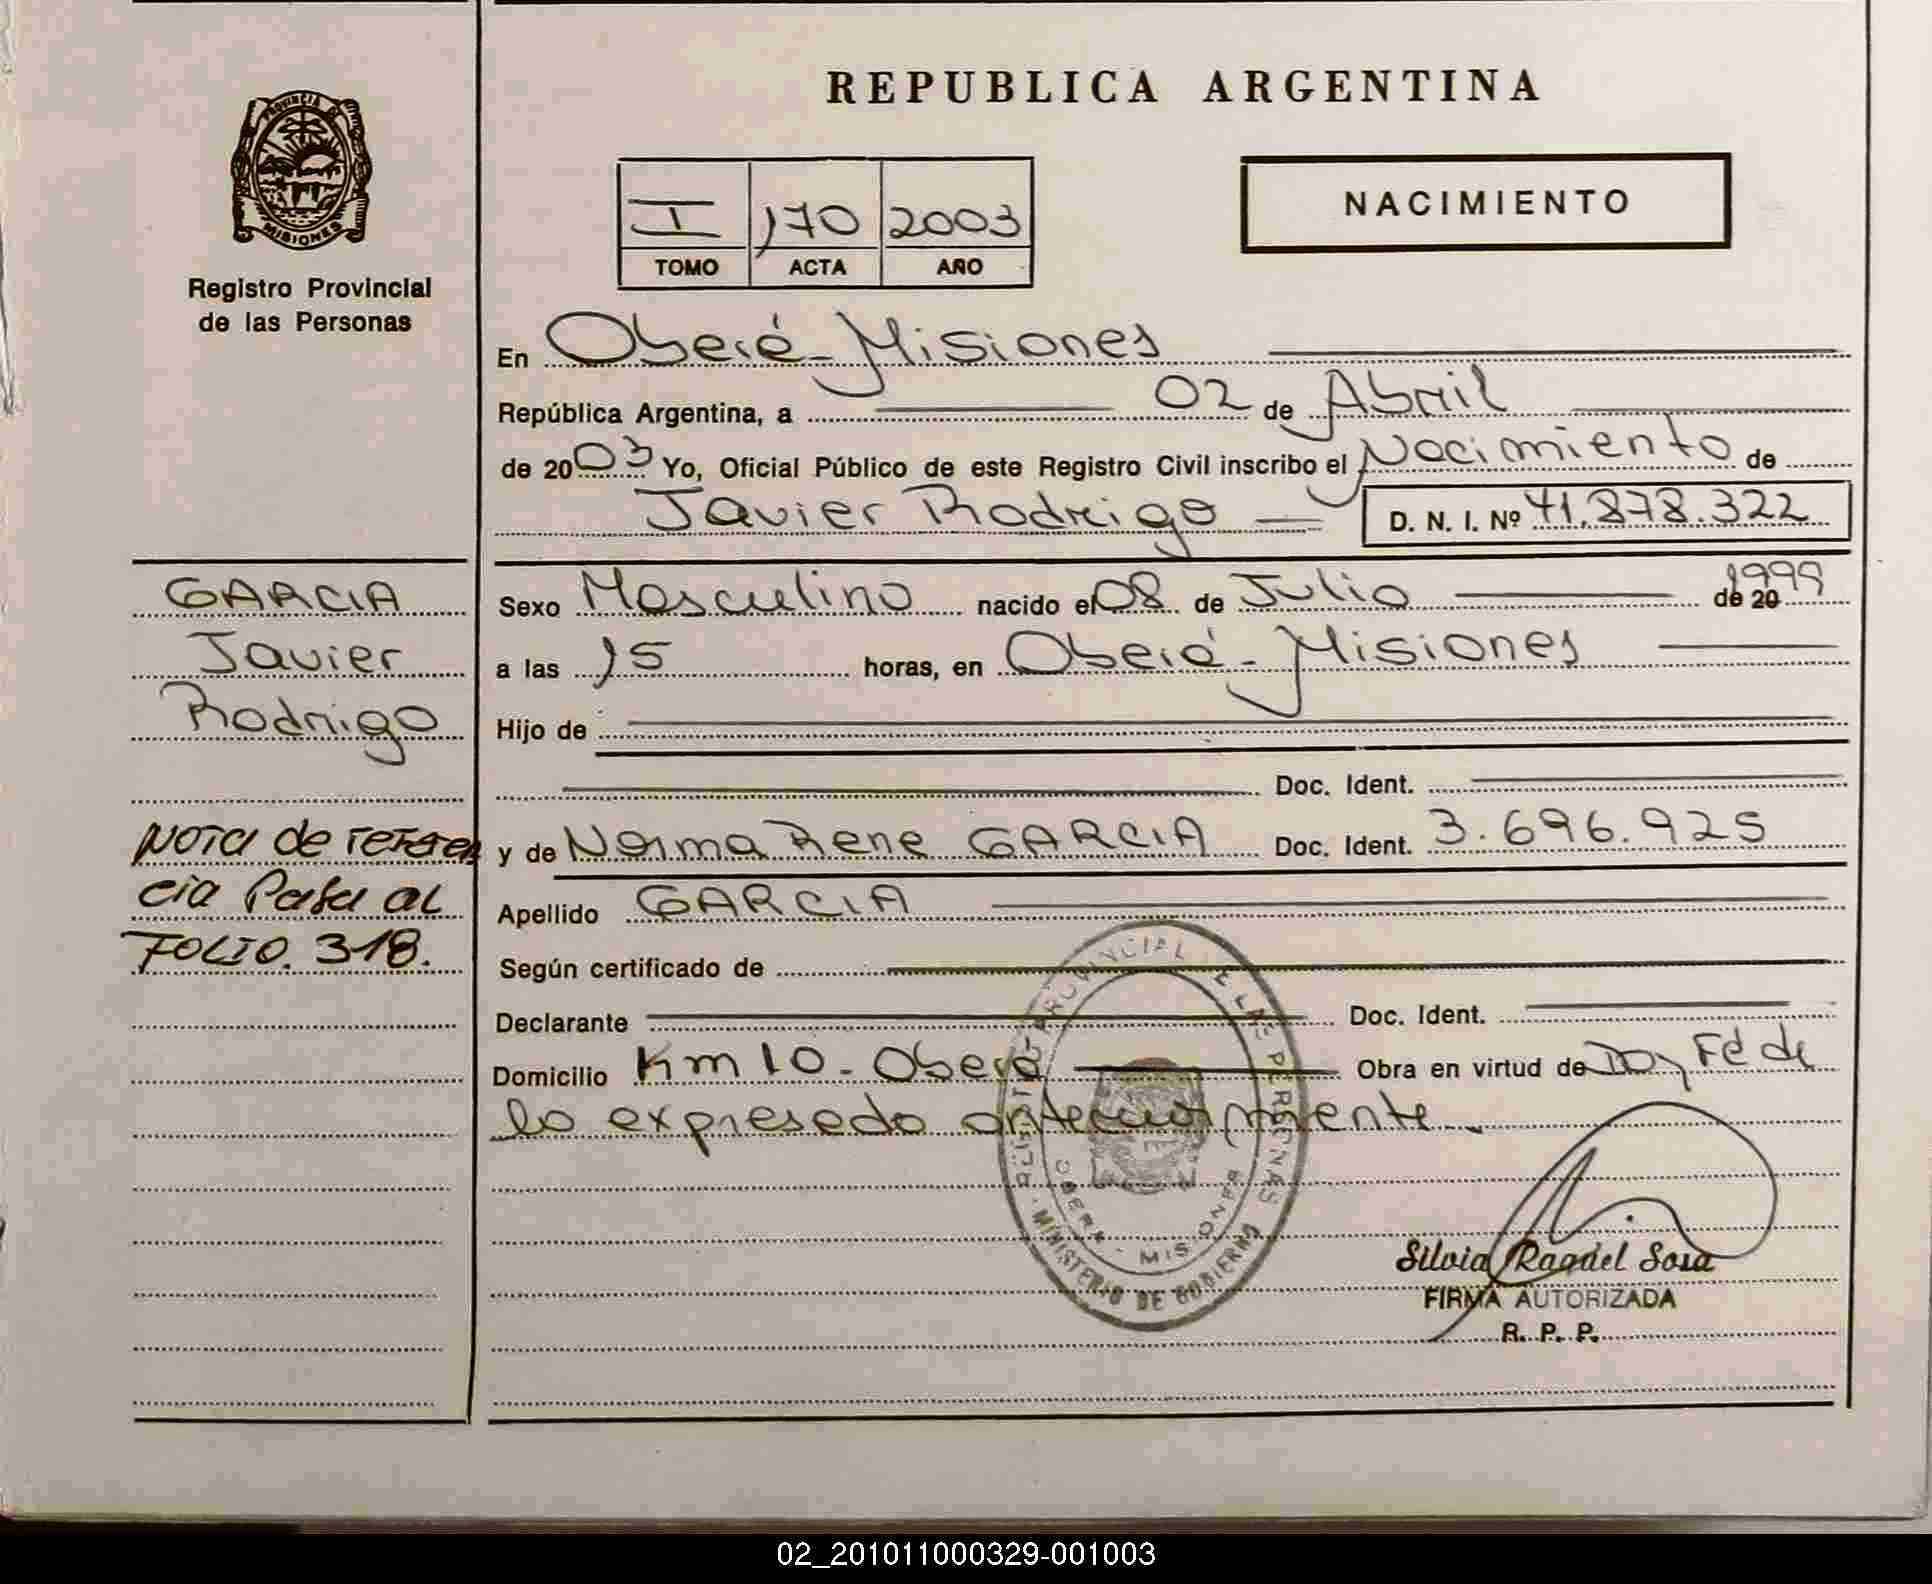 PROVINCIA DE
MISIONES
Registro Provincial
de las Personas
REPUBLICA ARGENTINA
I 170 2003
TOMO ACTA AÑO
NACIMIENTO
En Oberá - Misiones
República Argentina, a 02 de Abril
de 2003 Yo, Oficial Público de este Registro Civil inscribo el Nacimiento de
Javier Rodrigo D. N. I. Nº 41.878.322
GARCIA
Javier
Rodrigo
Nota de referen
cia Pasa al
FOLIO. 318.
Sexo Masculino nacido el 08 de Julio de 20 1999
a las 15 horas, en Oberá - Misiones
Hijo de
Doc. Ident.
y de Norma Rene GARCIA Doc. Ident. 3.696.925
Apellido GARCIA
Según certificado de
Declarante Doc. Ident.
Domicilio Km 10 - Oberá Obra en virtud de Doy Fé de
lo expresado anteriormente.
REGISTRO PROVINCIAL DE LAS PERSONAS
OBERA - MISIONES
MINISTERIO DE GOBIERNO
Silvia Raquel Sosa
FIRMA AUTORIZADA
R. P. P.
02_201011000329-001003